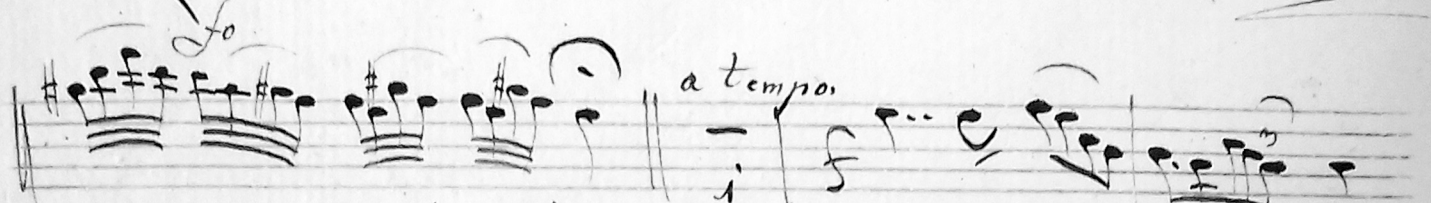 fo
a tempo.
1
f
3